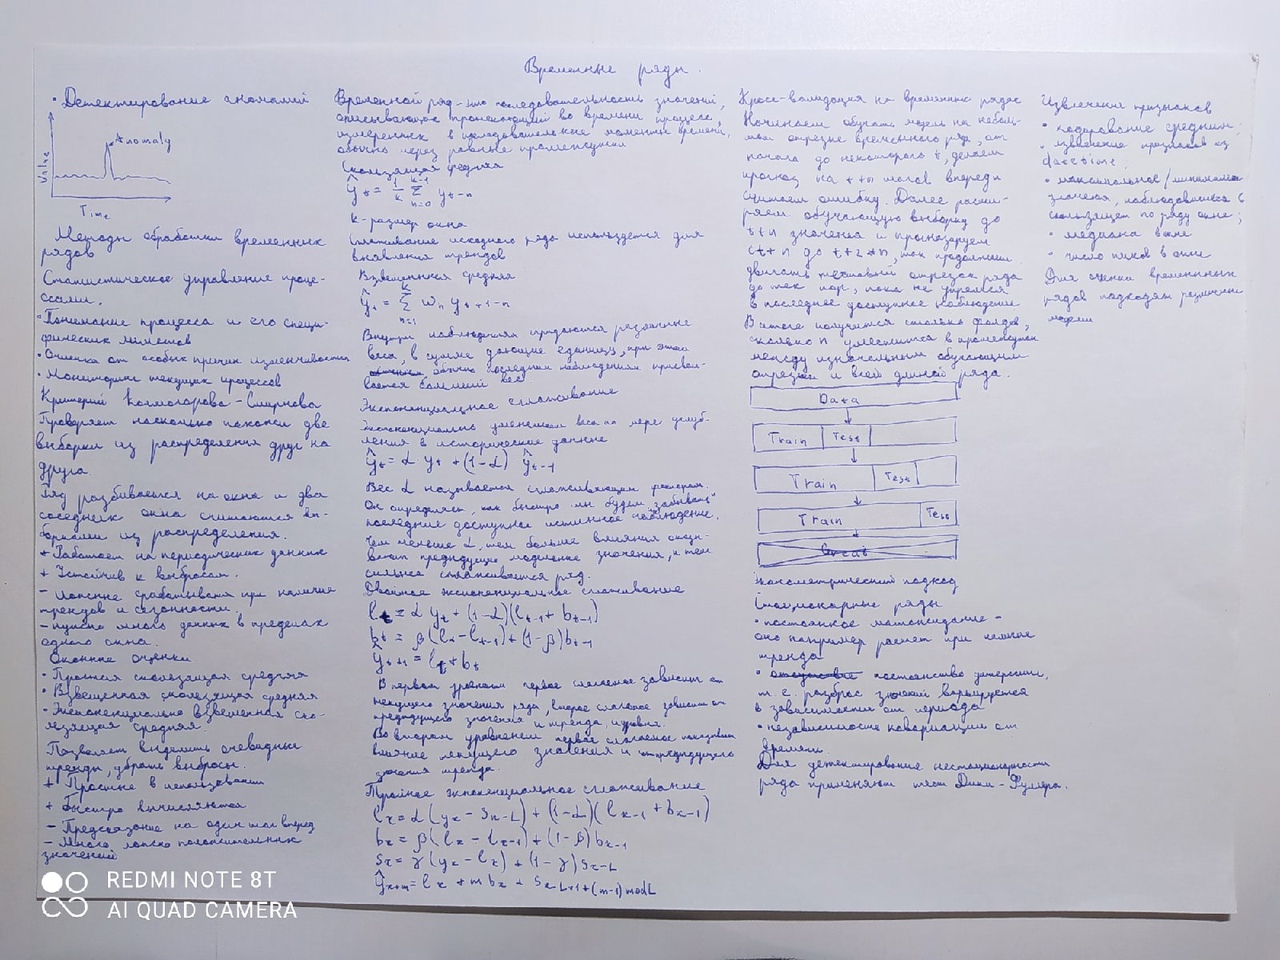 Временные ряды.
• Детектирование аномалий
Anomaly
Value
Time
Методы обработки временных
рядов
Статистическое управление проце-
ссами.
• Понимание процесса и его специ-
фических лимитов
• Очистка от особых причин изменчивости
• Мониторинг текущих процессов
Критерий Колмогорова-Смирнова
Проверяет насколько похожи две
выборки из распределения друг на
друга
Ряд разбивается на окна и два
соседних окна считаются вы-
борками из распределения.
+ Работает на периодических данных
+ Устойчив к выбросам.
- Ложные срабатывания при наличие
трендов и сезонности.
- нужно много данных в пределах
одного окна.
Оконные оценки
• Простая скользящая средняя
• Взвешенная скользящая средняя
• Экспоненциально взвешенная ско-
льзящая средняя.
Позволяет выделить очевидные
тренды, убрать выбросы.
+ Простые в использовании
+ Быстро вычисляются
- Предсказание на один шаг вперед
- Много ложно положительных
значений
Временной ряд - это последовательность значений,
описывающих происходящий во времени процесс,
измеренных в последовательные моменты времени,
обычно через равные промежутки
Скользящая средняя
ŷt = 1/k Σ yt-n
k-1
n=0
k - размер окна
Сглаживание исходного ряда используется для
выявления трендов
Взвешенная средняя
ŷt = Σ wn yt+1-n
k
n=1
Внутри наблюдениям придаются различные
веса, в сумме дающие единицу, при этом
обычно последним наблюдениям присваи-
вается больший вес
Экспоненциальное сглаживание
Экспоненциально уменьшаем веса по мере углуб-
ления в исторические данные
ŷt = α yt + (1-α) ŷt-1
Вес α называется сглаживающим фактором.
Он определяет, как быстро мы будем "забывать"
последнее доступное истинное наблюдение.
Чем меньше α, тем больше влияния оказы-
вают предыдущие модельные значения, и тем
сильнее сглаживается ряд.
Двойное экспоненциальное сглаживание
lt = α yt + (1-α)(lt-1 + bt-1)
bt = β(lx - lt-1) + (1-β)bt-1
ŷt+1 = lt + bt
В первом уравнении первое слагаемое зависит от
текущего значения ряда, второе слагаемое зависит от
предыдущего значения и тренда, уровня.
Во втором уравнении первое слагаемое
влияние текущего значения и предыдущего
значения тренда.
Тройное экпоненциальное сглаживание
lx = α(yx - Sx-L) + (1-α)(lx-1 + bx-1)
bx = β(lx - lx-1) + (1-β)bx-1
Sx = γ(yx - lx) + (1-γ)Sx-L
ŷx+m = lx + mbx + Sx-L+1+(m-1)modL
Кросс-валидация на временных рядах
Начинаем обучать модель на неболь-
шом отрезке временного ряда, от
начала до некоторого t, делаем
прогноз на t+n шагов вперед и
считаем ошибку. Далее расши-
ряем обучающую выборку до
t+n значения и прогнозируем
с t+n до t+2*n, так продолжаем
двигать тестовый отрезок ряда
до тех пор, пока не упремся
в последнее доступное наблюдение
В итоге получится столько фолдов,
сколько n уместится в промежуток
между изначальным обучающим
отрезком и всей длиной ряда.
Data
Train Test
Train Test
Train Test
Эконометрический подход
Стационарные ряды
• постоянное матожидание -
оно например растет при наличии
тренда
• постоянство дисперсии,
т.е. разброс значений варьируется
в зависимости от периода
• независимость ковариации от
времени.
Для детектирование нестационарности
ряда применяют тест Дики-Фуллера.
Извлечение признаков
• кодирование средним;
• извлечение признаков из
datetime;
• максимальное/минимальное
значения, наблюдавшиеся в
скользящем по ряду окне;
• медиана в окне
• число пиков в окне
Для оценки временных
рядов подходят различные
модели
REDMI NOTE 8T
AI QUAD CAMERA